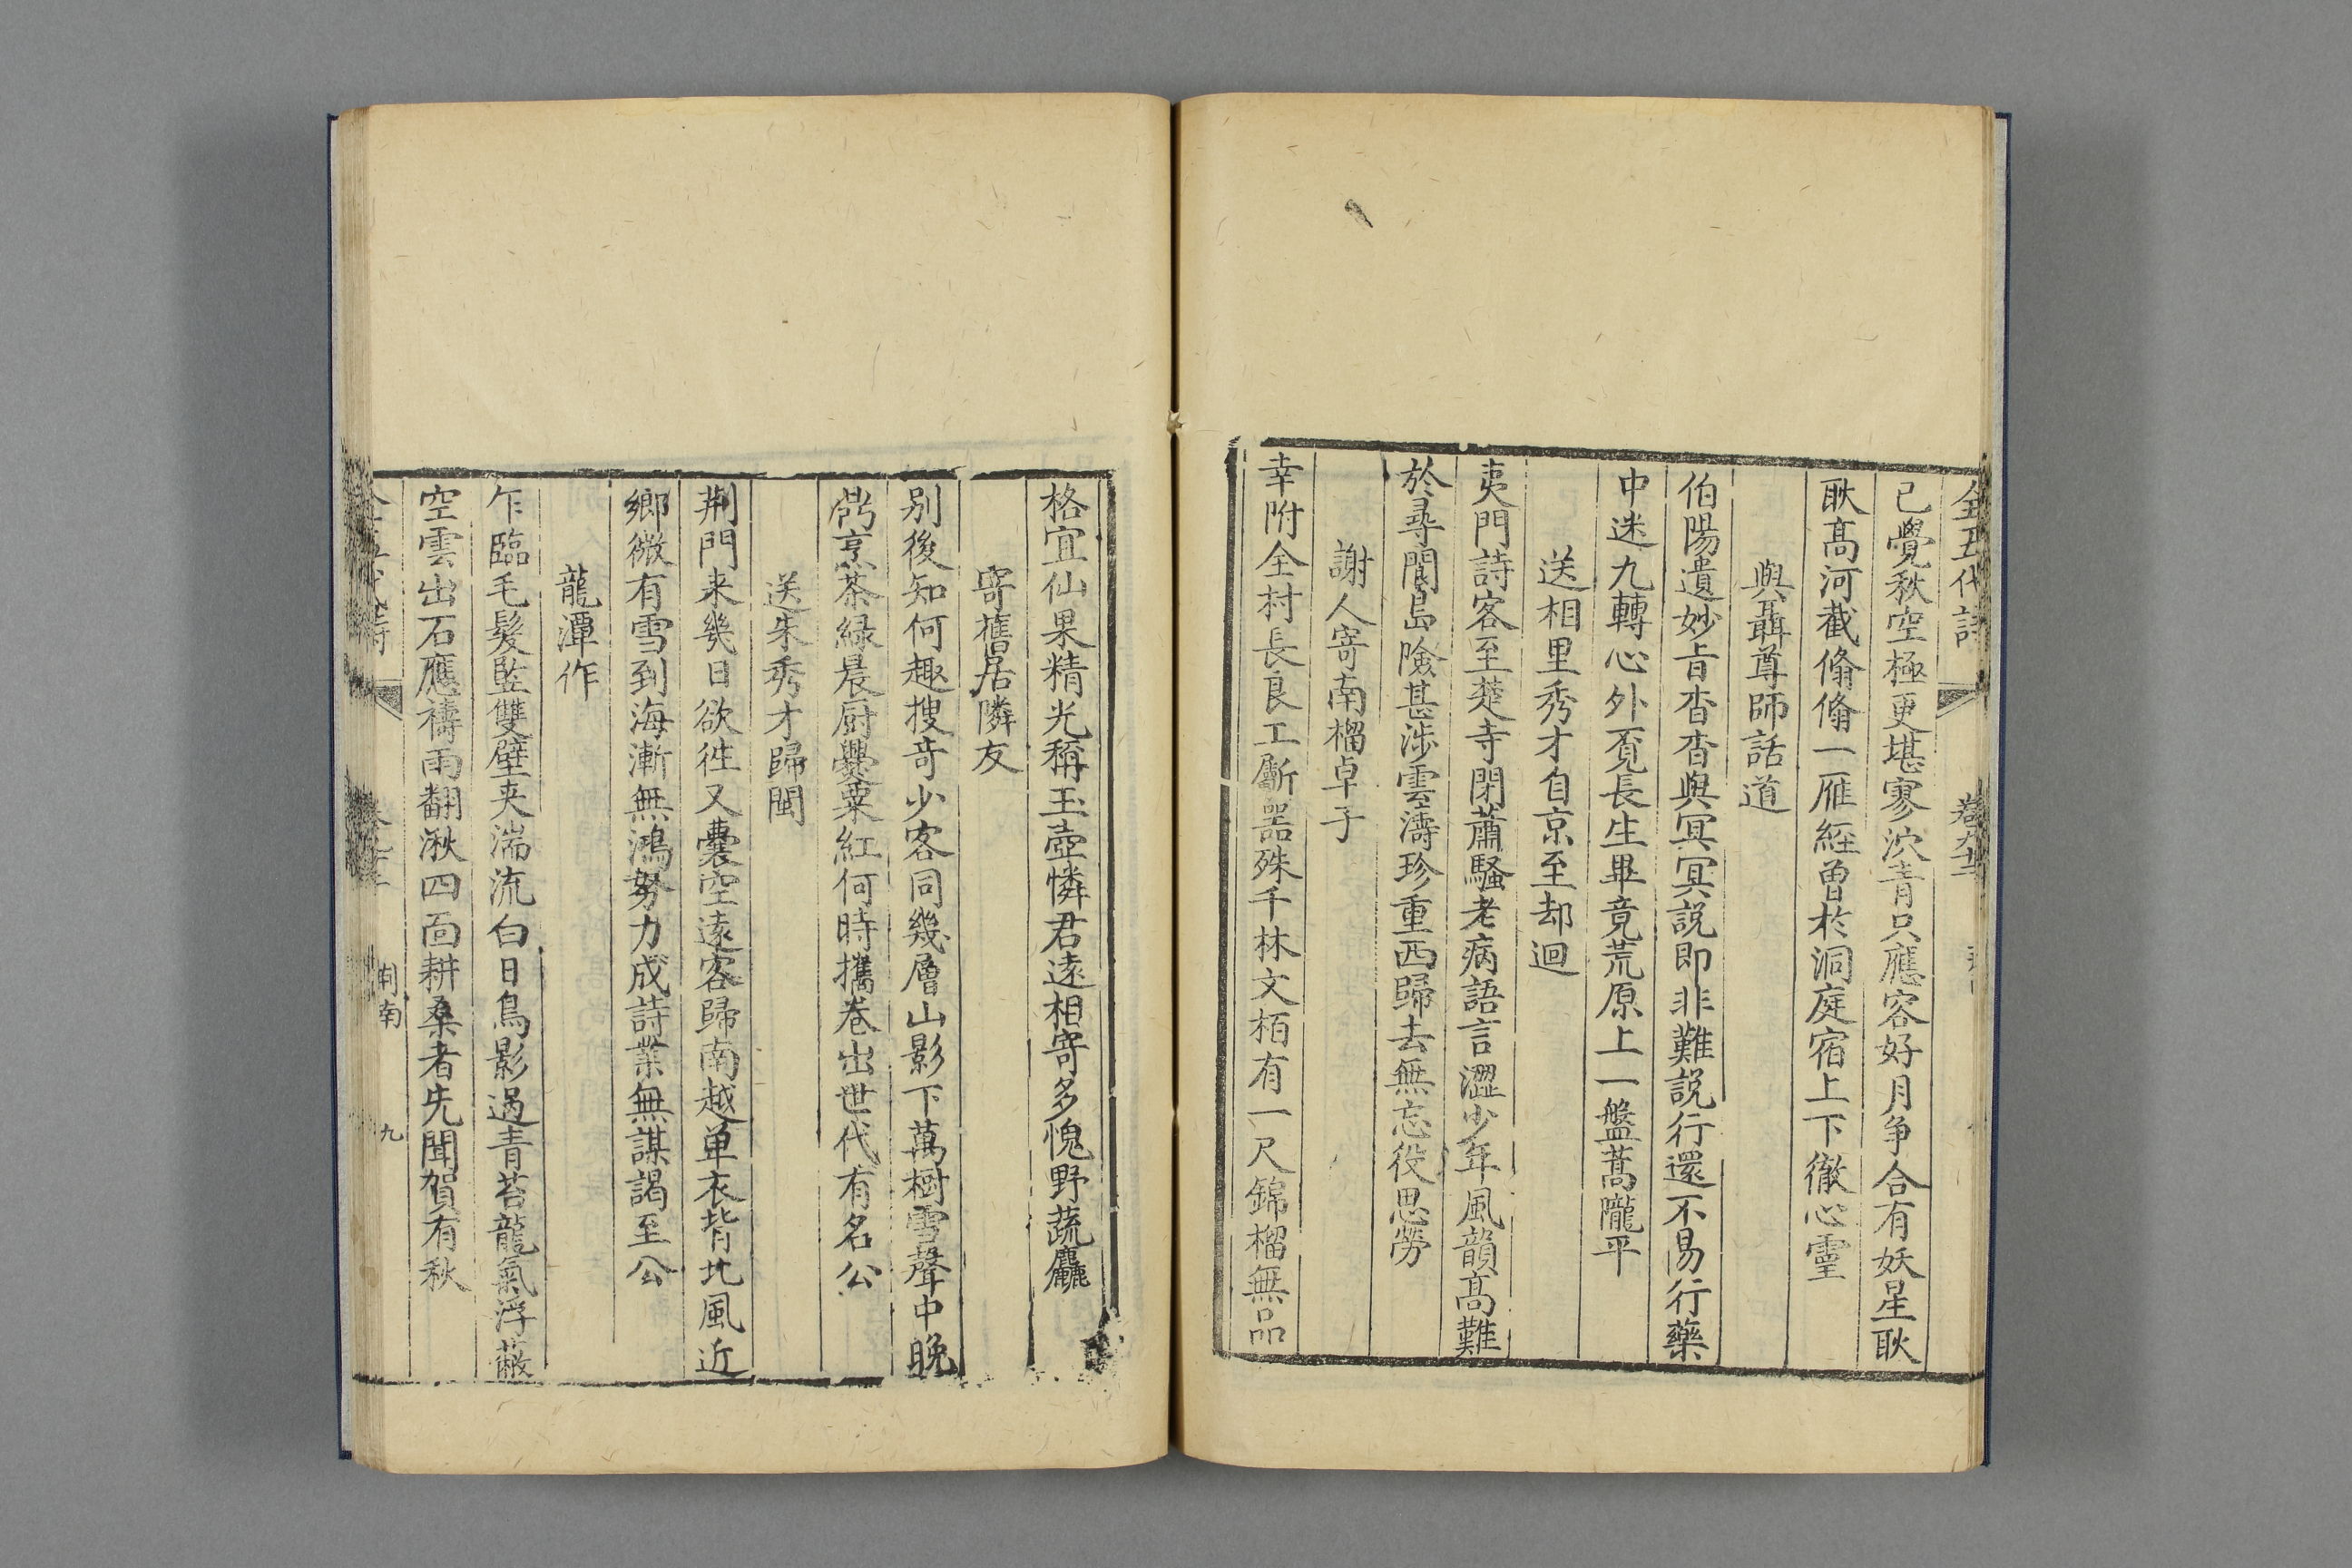 全五代詩
已覺秋空極更堪寥泬青只應容好月争合有妖星耿
耿髙河截翛翛一雁經曽於洞庭宿上下徹心靈
與聶尊師話道
伯陽遺妙旨杳杳與冥冥説即非難説行還不易行藥
中迷九轉心外覔長生畢竟荒原上一盤蒿隴平
送相里秀才自京至却迴
夷門詩客至楚寺閉蕭騷老病語言澀少年風韻髙難
於尋閬島險甚涉雲濤珍重西歸去無忘役思勞
謝人寄南榴卓子
幸附全村長良工斸器殊千林文栢有一尺錦榴無品
格宜仙果精光稱玉壺憐君遠相寄多愧野蔬麤
寄舊居隣友
别後知何趣搜竒少客同幾層山影下萬樹雪聲中晚
鼎烹茶緑晨厨爨粟紅何時攜巻出世代有名公
送朱秀才歸閩
荆門来幾日欲徃又囊空遠客歸南越单衣背北風近
鄉微有雪到海漸無鴻努力成詩業無謀謁至公
龍潭作
乍臨毛髮監雙壁夹湍流白日鳥影過青苔龍氣浮蔽
空雲出石應禱雨翻湫四面耕桑者先聞賀有秋
荆南
九